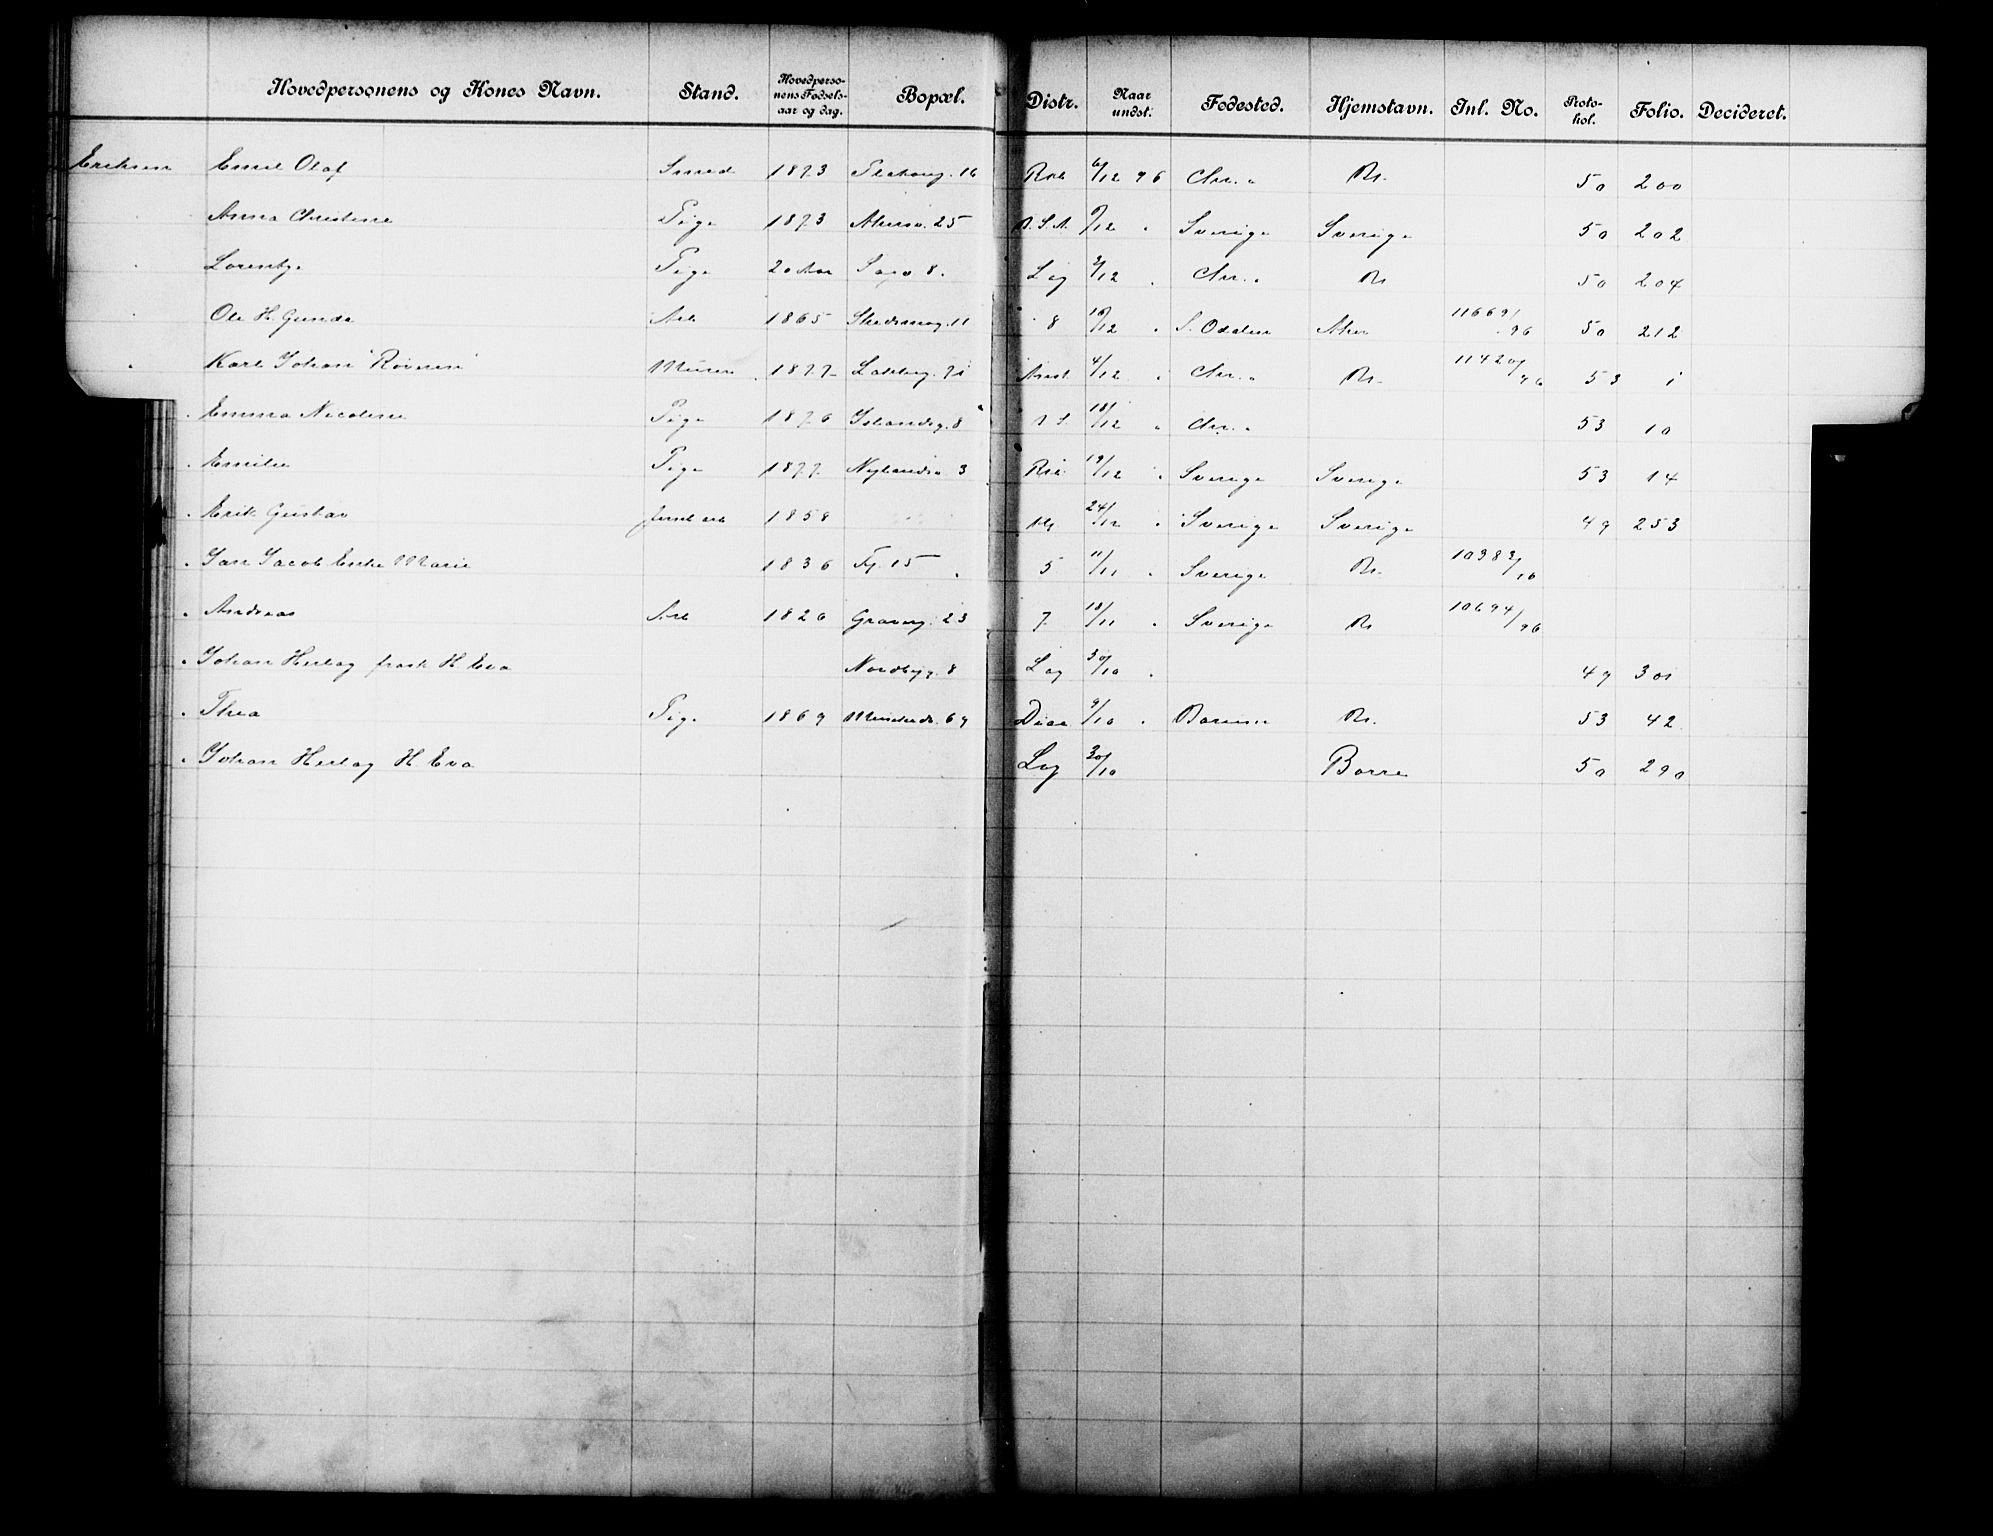 Hovedpersonens og Kones Navn. Stand. Hovedpersonens Fødselsaar og dag. Bopæl. Distr. Naar undst. Fødested. Hjemstavn. Inl. No. Protokol. Folio. Decideret.
Eriksen Emil Olaf Smed 1873 16 6/12 96 Chr. 50 200
Anna Christine Pige 1873 Akersv. 25 /12 " Sverige Sverige 50 202
Lorentze Pige 20 Aar 8. Lag /12 " Chr. 50 204
Ole H. Gunda Arb 1865 11 8 /12 " S. Odalen Aker 11669/96 50 212
Karl Johan "Röveren" Murer 1877 71 4/12 " Chr. 11420/96 53 1
Emma Nicoline Pige 1876 Islandsg. 8 18/12 " Chr. 53 10
" Emilie Pige 1877 Nylandsv. 3 19/12 " Sverige Sverige 53 14
" Erik Gustav Jernb arb 1858 24/12 " Sverige Sverige 49 253
" Jan Jacob Enke Marie 1836 15 5 11/11 " Sverige 10383/96
" Andreas Arb 1826 Graverg. 23 7 18/11 " Sverige 10694/96
" Johan Hertag frask H. Eva Nordbyg. 8 Lag 30/10 " 49 301
" Thea Pige 1869 69 9/10 " 53 42
" Johan Hertag H. Eva Lag 30/10 Borre 50 290